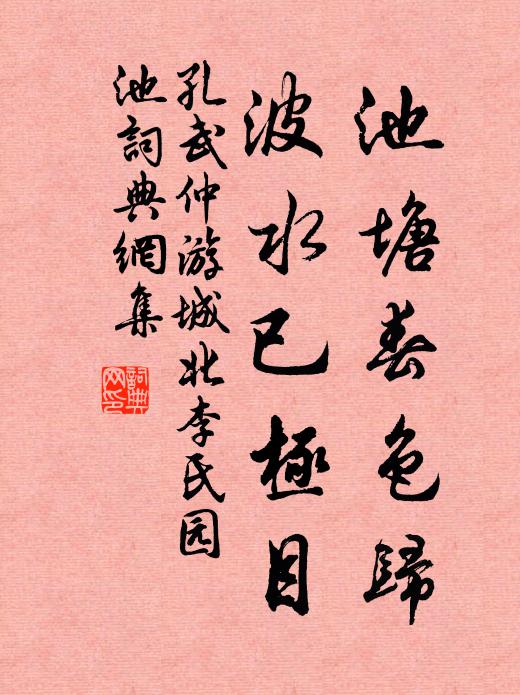 池塘春色歸
波水已極目
孔武仲游城北李氏园
池詞典網集
詞典网印